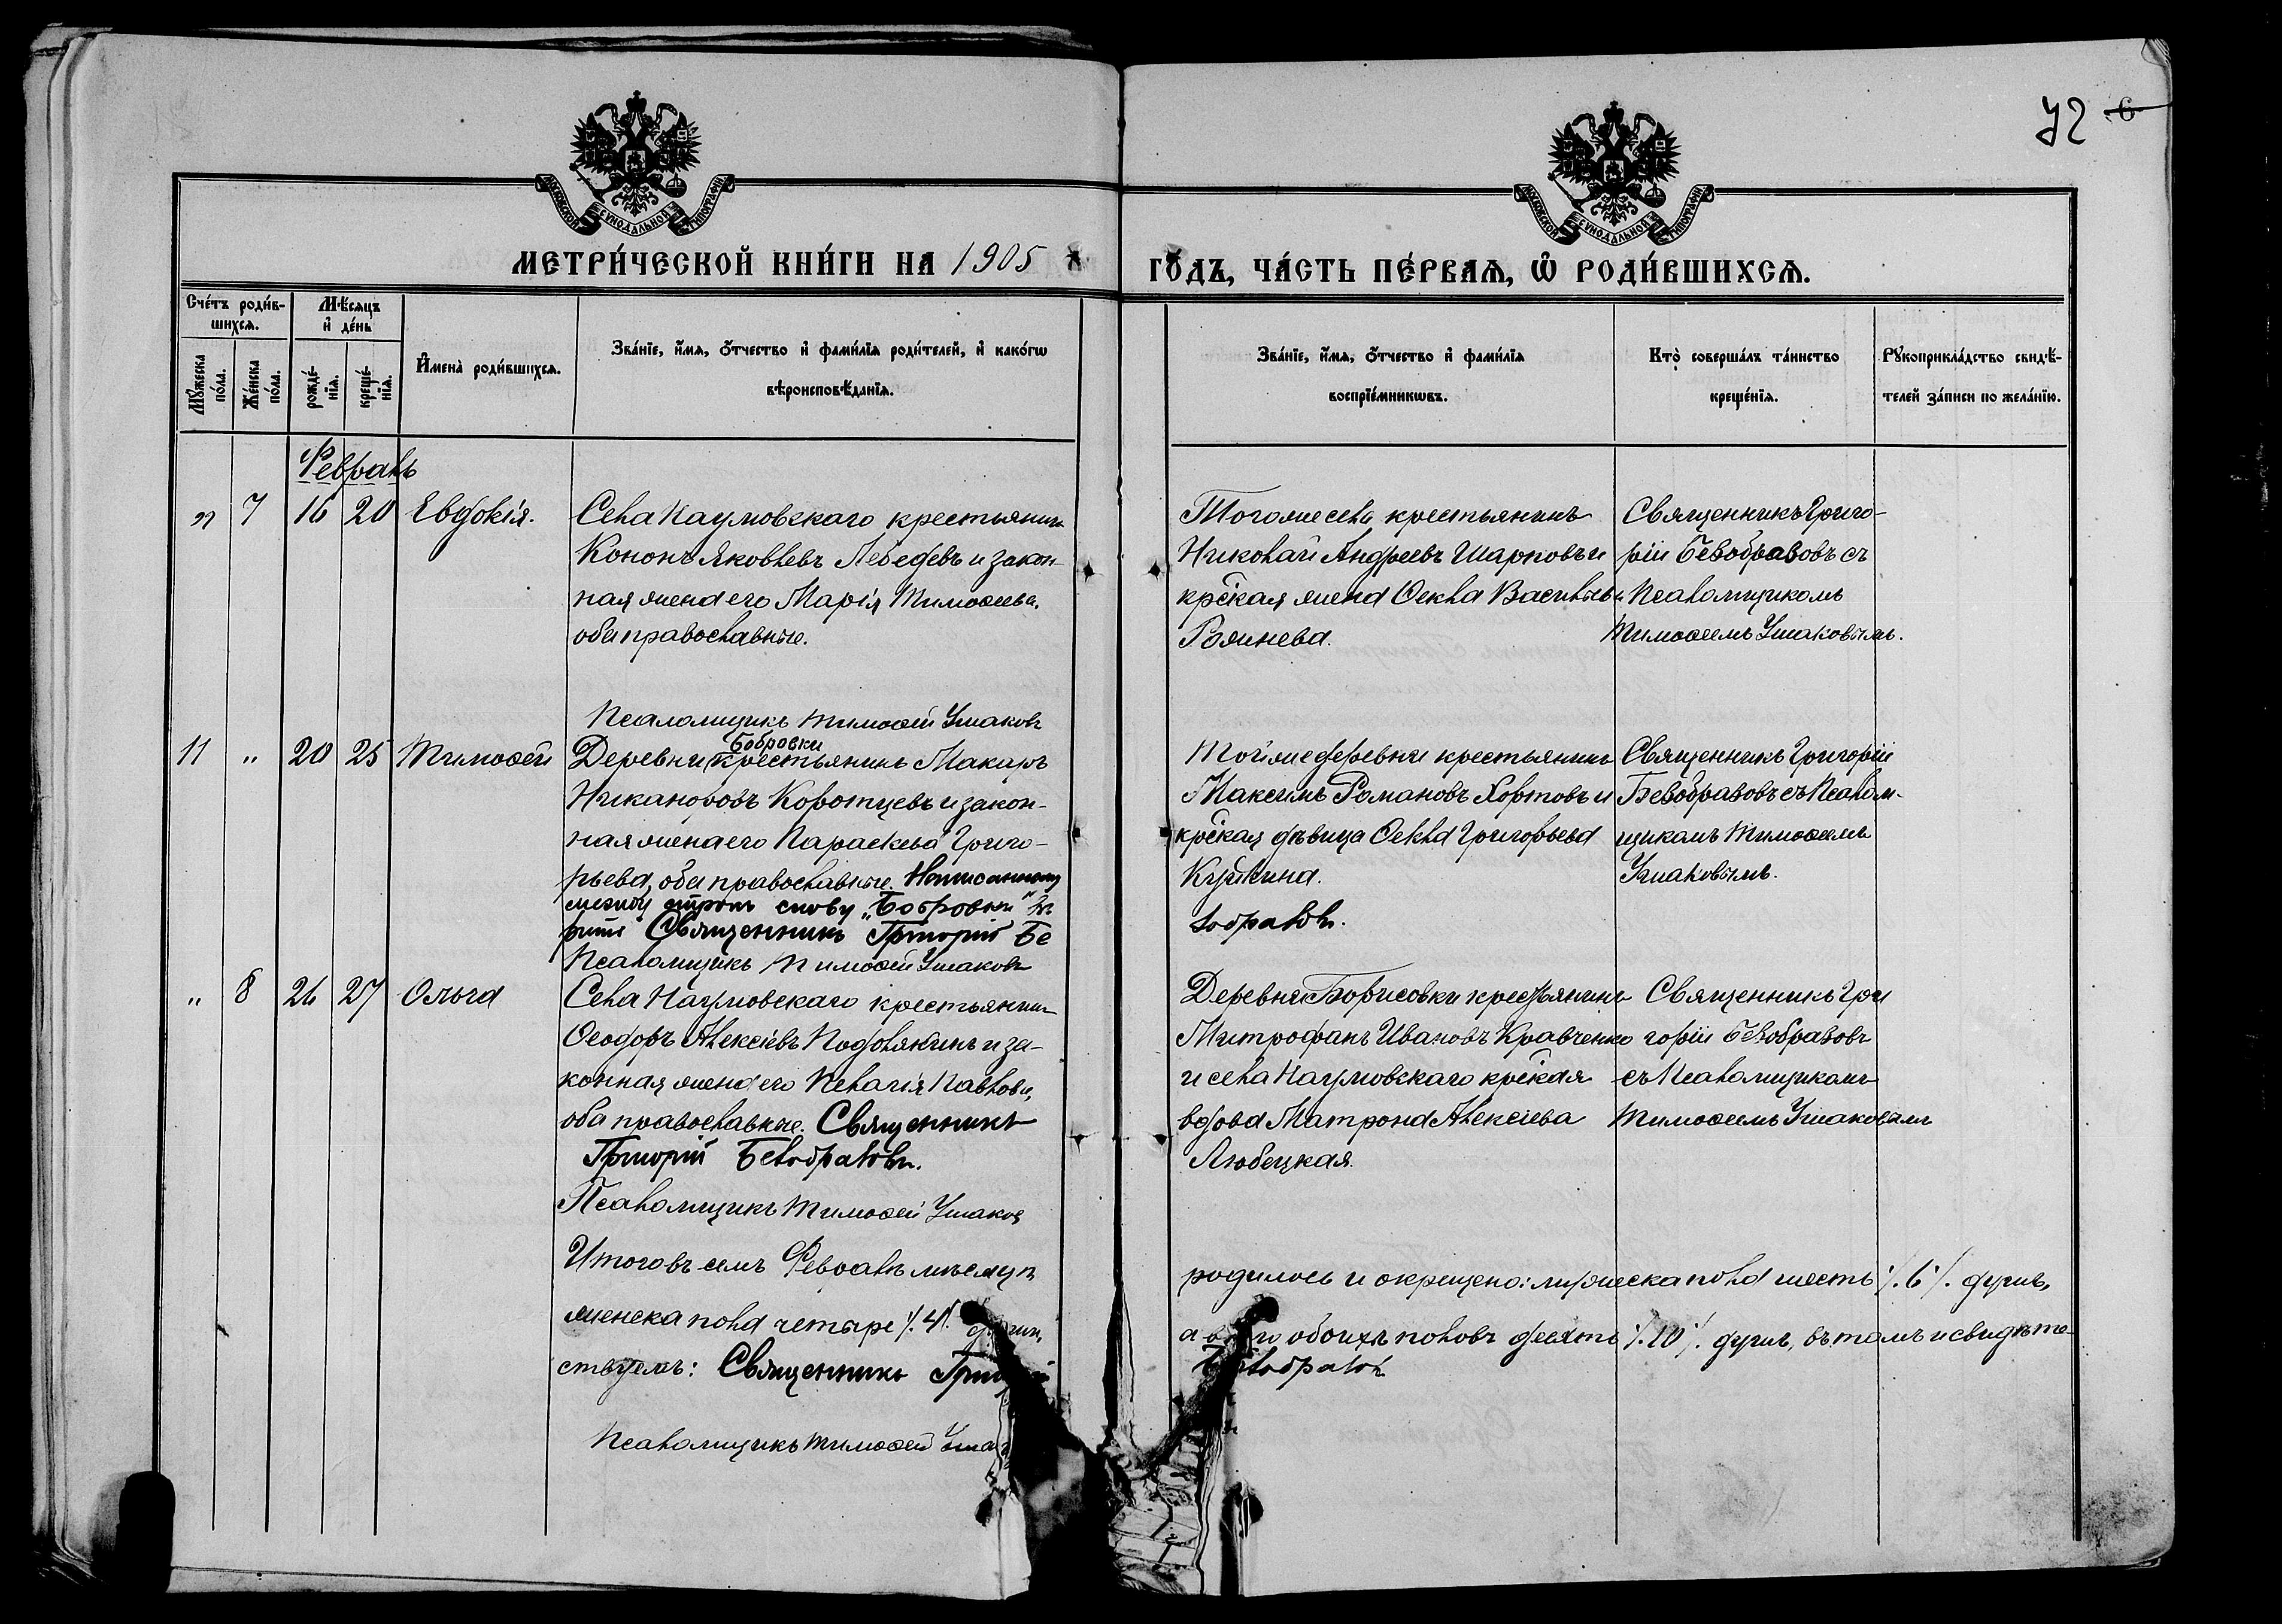 72 6
МОСКОВСКОЙ СѴНОДАЛЬНОЙ ТИПОГРАФІИ
МОСКОВСКОЙ СѴНОДАЛЬНОЙ ТИПОГРАФІИ
МЕТРИ́ЧЕСКОЙ КНИ́ГИ НА 1905
ГО́ДЪ, ЧА́СТЬ ПЕ́РВАѦ, Ѽ РОДИ́ВШИХСѦ.
Сче́тъ роди́в-
шихсѧ.
Мѣ́сяцъ
и҆ де́нь
Мꙋ́жеска по́ла.
Же́нска по́ла.
рожде́-нїѧ.
креще́-нїѧ.
И҆мена̀ роди́вшихсѧ.
Зва́нїе, и҆́мѧ, ѻ҆́тчество и҆ фами́лїѧ роди́телей, и҆ како́гѡ
вѣроисповѣ́данїѧ.
Зва́нїе, и҆́мѧ, ѻ҆́тчество и҆ фами́лїѧ
воспрїе́мникѡвъ.
Кто̀ соверша́лъ та́инство
креще́нїѧ.
Рꙋкоприкла́дство свидѣ́-
телей за́писи по жела́нїю.
Февраль
" 7 16 20 Евдокія.
Села Наумовскаго крестьянинъ
Кононъ Яковлевъ Лебедевъ и закон-
ная жена его Марія Тимофеева,
оба православные.
Того же села крестьянинъ
Николай Андреевъ Шарповъ и
крес̃кая жена Фекла Васильева
Рожнева.
Священникъ Григо-
рій Безобразовъ съ
Псаломщикомъ
Тимофеемъ Ушаковымъ.
Псаломщикъ Тимофей Ушаковъ
11 " 20 25 Тимофей
Бобровки
Деревни крестьянинъ Макаръ
Никаноровъ Коротцевъ и закон-
ная жена его Параскева Григо-
рьева, оба православные. Написанному
между строкъ слову „Бобровки"
Священникъ Григорій Бе
Псаломщикъ Тимофей Ушаковъ
Той же деревни крестьянинъ
Максимъ Романовъ Хортовъ и
крес̃кая дѣвица Фекла Григорьева
Кушкина.
зобразовъ.
Священникъ Григорій
Безобразовъ съ Псалом-
щикомъ Тимофеемъ
Ушаковымъ.
" 8 26 27 Ольга
Села Наумовскаго крестьянинъ
Феодоръ Алексѣевъ Подолякинъ и за-
конная жена его Пелагія Павлова,
оба православные. Священникъ
Григорій Безобразовъ.
Псаломщикъ Тимофей Ушаковъ
Деревни Борисовки крестьянинъ
Митрофанъ Ивановъ Кравченко
и села Наумовскаго крес̃кая
вдова Матрона Алексѣева
Любецкая.
Священникъ Гри
горій Безобразовъ
съ Псаломщикомъ
Тимофеемъ Ушаковымъ
Итого въ семъ Февралѣ мѣсяцѣ
родилось и окрещено: мужеска пола шесть ⁒ 6 ⁒ душъ,
женска пола четыре ⁒ 4 ⁒
обоихъ половъ десять ⁒ 10 ⁒ душъ, въ томъ и свидѣте-
ствуемъ: Священникъ
Псаломщикъ Тимофей